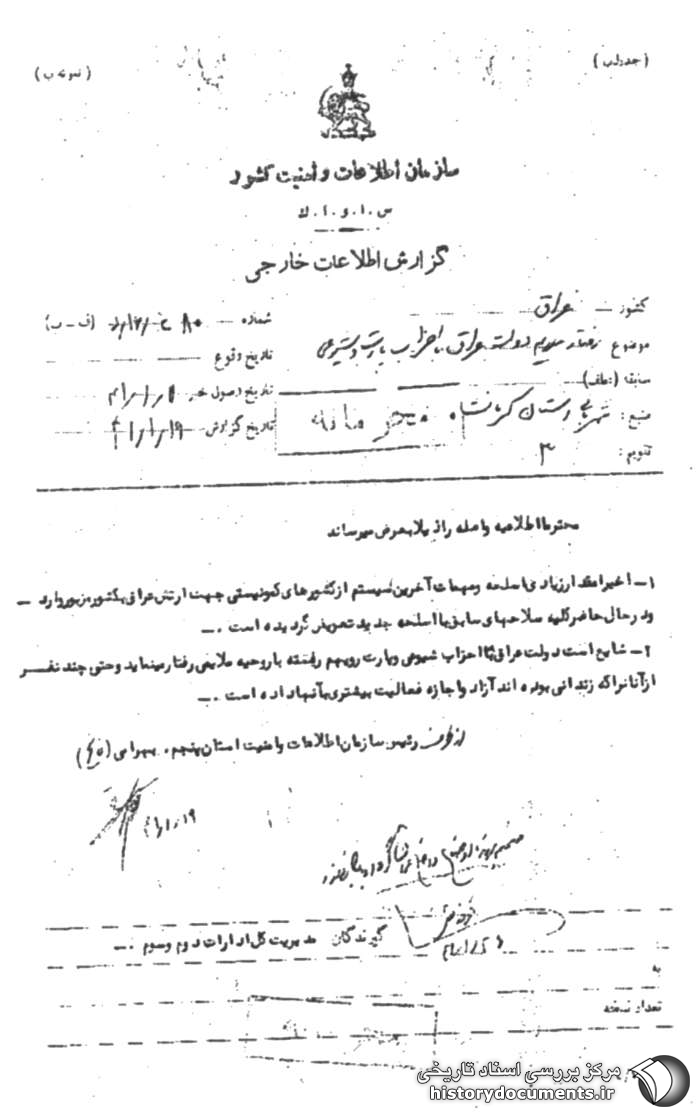 (جدول ب)
(نمونه ب)
سازمان اطلاعات و امنیت کشور
س . ا . و . ا . ک
گزارش اطلاعات خارجی
کشور عراق
شماره (ف-ب)
موضوع رفتار ملایم دولت عراق با احزاب پارت و شیوعی
تاریخ وقوع
سابقه (عطف)
تاریخ وصول خبر
منبع:
محرمانه
تاریخ گزارش
تقویم: ۳
محترما اطلاعیه واصله را ذیلا بعرض میرساند
۱- اخیرا مقدار زیادی اسلحه و مهمات آخرین سیستم از کشورهای کمونیستی جهت ارتش عراق بکشور مزبور وارد -
و در حال حاضر کلیه سلاحهای سابق با اسلحه جدید تعویض گردیده است .-
۲- شایع است دولت عراق با احزاب شیوعی و پارت رویهم رفته با روحیه ملایمی رفتار مینماید و حتی چند نفر
از آنانرا که زندانی بوده اند آزاد و اجازه فعالیت بیشتری بآنها داده است .-
از طرف رئیس سازمان اطلاعات و امنیت استان پنجم . بهرامی
گیرندگان مدیریت کل ادارات دوم و سوم .-
به
تعداد نسخه
مرکز بررسی اسناد تاریخی
historydocuments.ir